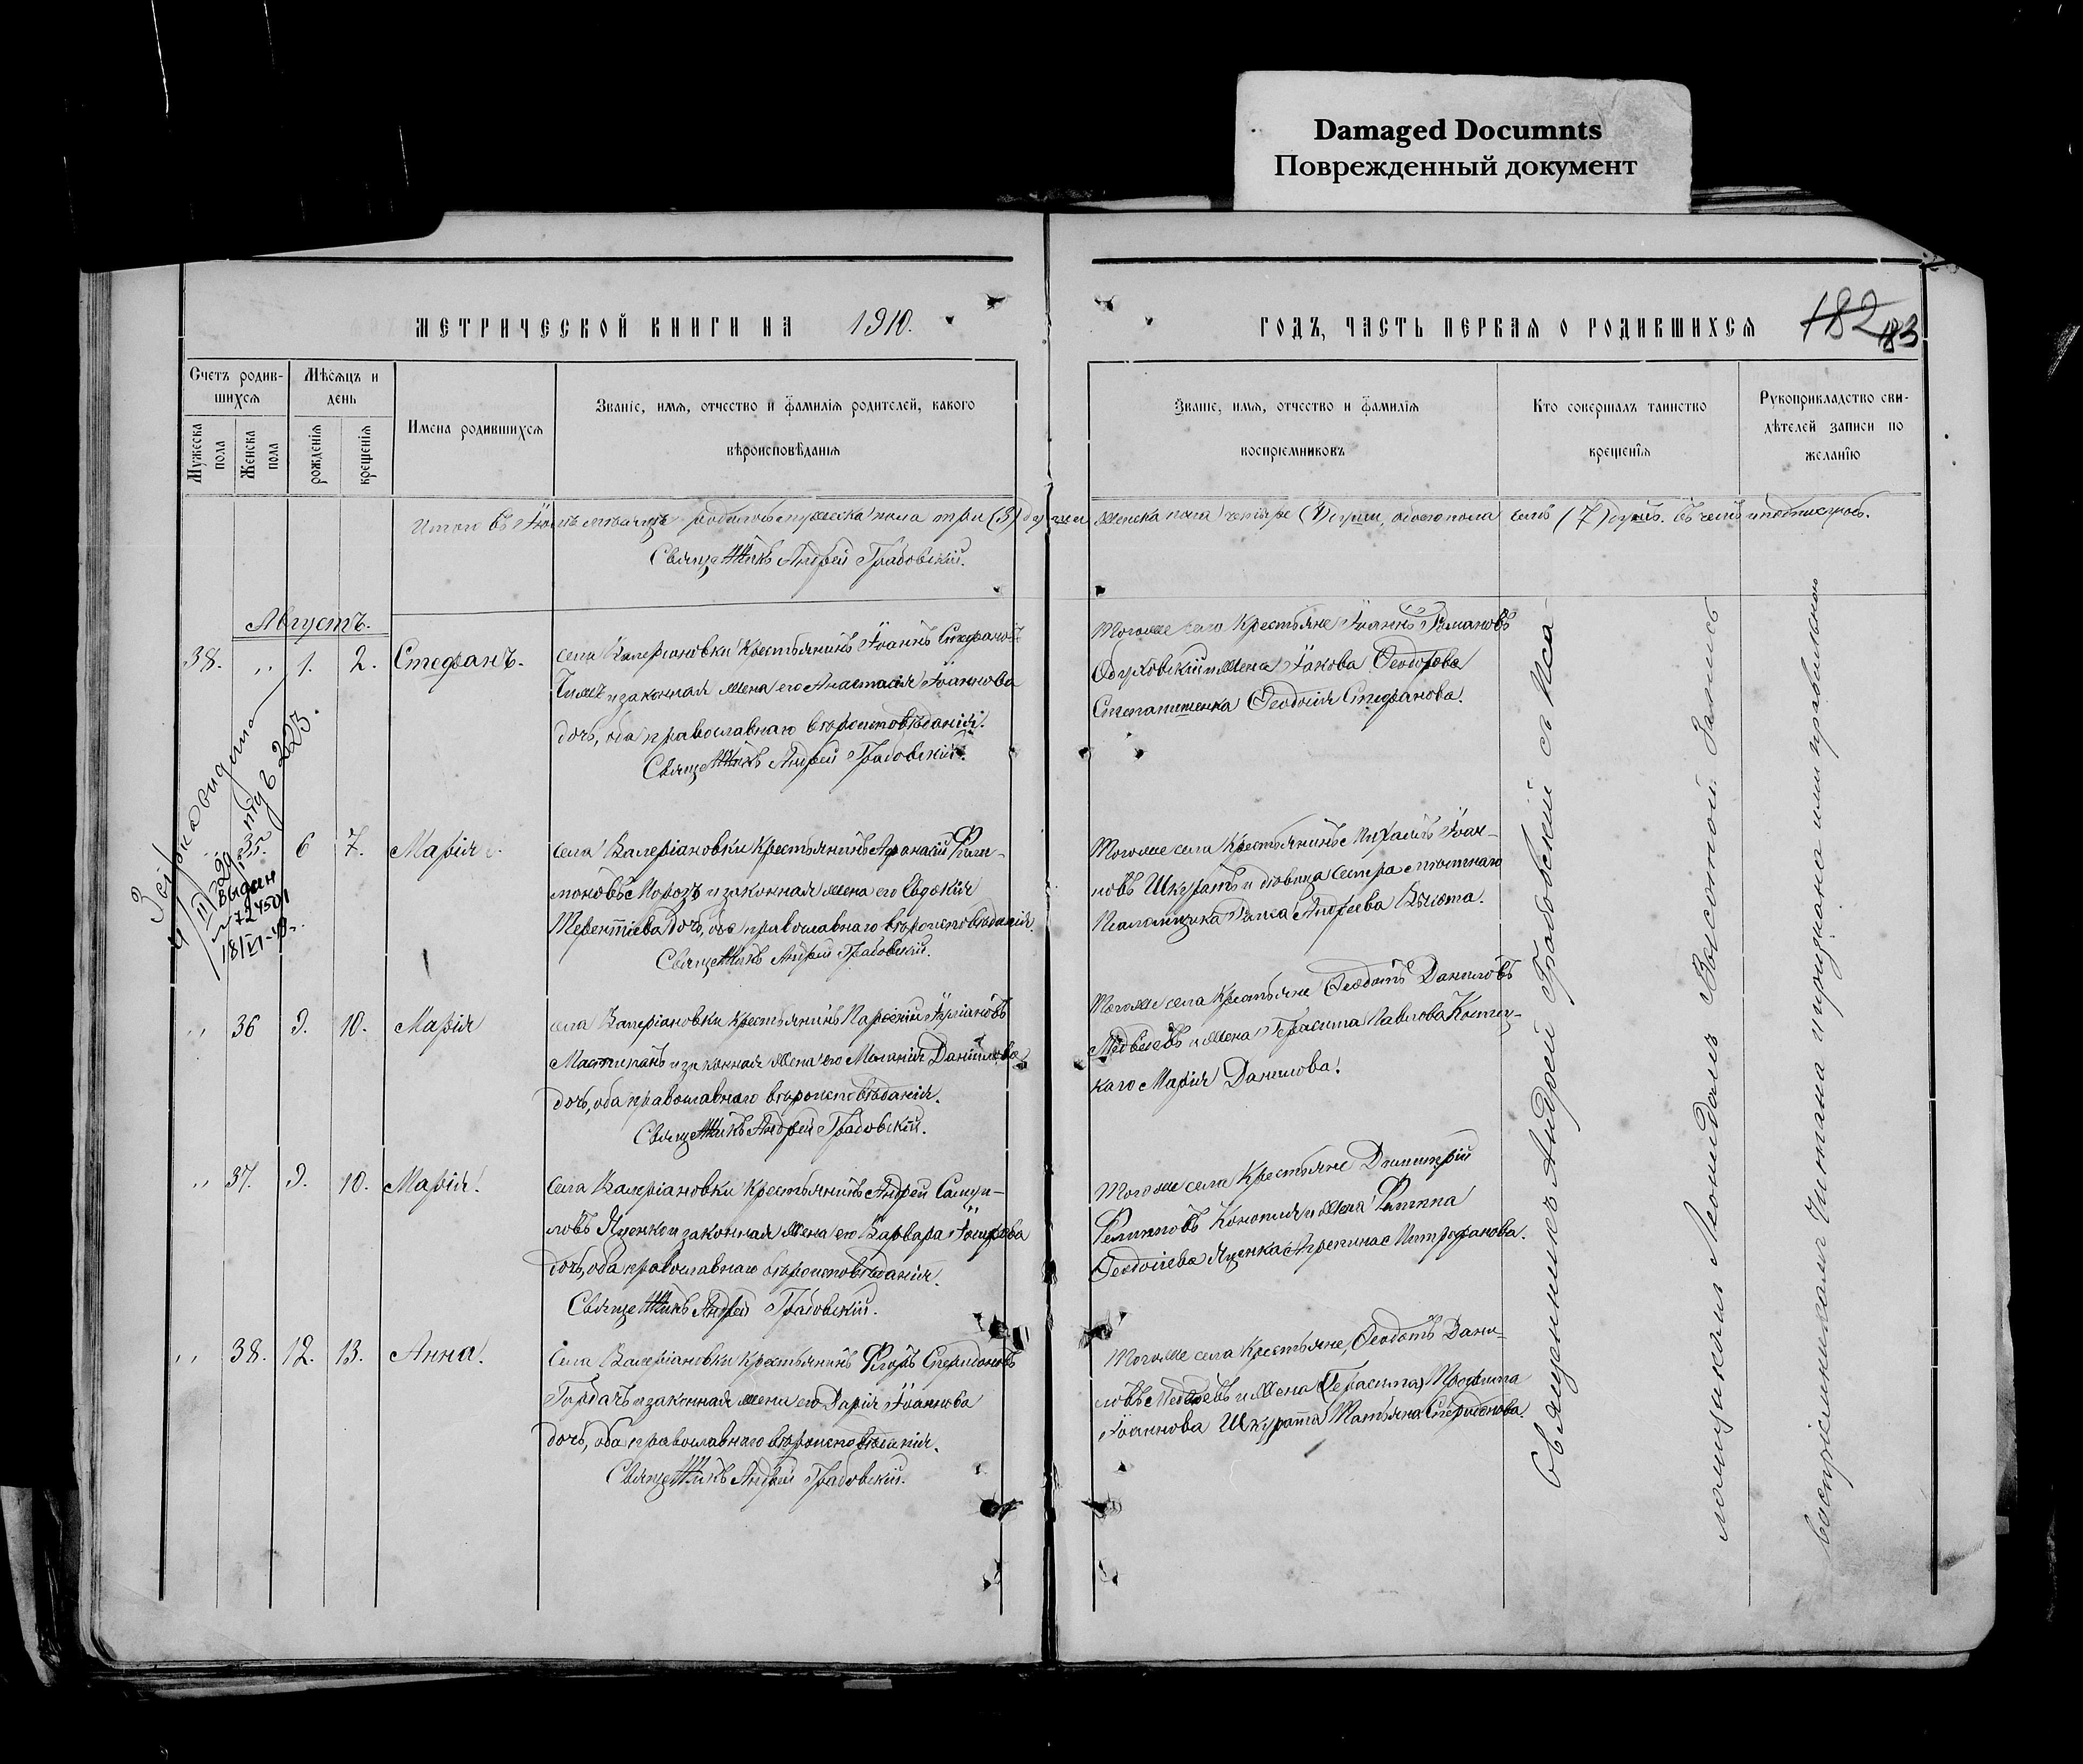 Damaged Documnts
Поврежденный документ
МЕТРИЧЕСКОЙ КНИГИ НА 1910.
ГОДЪ, ЧАСТЬ ПЕРВАЯ О РОДИВШИХСЯ
182
183
Счетъ родив-
шихся
Мужеска пола
Женска пола
Мѣсяцъ и
день
рожденія
крещенія
Имена родившихся
Званіе, имя, отчество и фамилія родителей, какого
вѣроисповѣданія
Званіе, имя, отчество и фамилія
воспріемниковъ
Кто совершалъ таинство
крещенія
Рукоприкладство сви-
дѣтелей записи по
желанію
Итого въ Іюлѣ мѣсяцѣ родилось мужеска пола три (3) души женска пола четыре (4) души, обоего пола семь (7) душъ. Въ чемъ и подписуюсь.
Священникъ Андрей Грабовскій.
Августъ.
38. „ 1. 2. Стефанъ.
села Валеріановки крестьянинъ Іоаннъ Стефановъ
и законная жена его Анастасія Іоаннова
дочь, оба православнаго вѣроисповѣданія.
Священникъ Андрей Грабовскій.
Тогоже села крестьяне Іоаннъ Романовъ
Обуховскій и жена Іакова Ѳеодорова
Степаненка Ѳеодосія Стефанова.
выдан
18/VI-
„ 35. 6 7. Марія
села Валеріановки крестьянинъ Афанасій Фили-
моновъ Морозъ и законная жена его Евдокія
Терентіева дочь, оба православнаго вѣроисповѣданія.
Священникъ Андрей Грабовскій.
Тогоже села крестьянинъ Михаилъ Іоан-
новъ Шкуратъ и дѣвица сестра мѣстнаго
Псаломщика Андреева
„ 36 9. 10. Марія
села Валеріановки крестьянинъ Парѳеній Іуліановъ
и законная жена его Меланія Даніилова
дочь, оба православнаго вѣроисповѣданія.
Священникъ Андрей Грабовскій.
Тогоже села крестьяне Ѳеодотъ Даниловъ
Медведевъ и жена Герасима Павлова Костец-
каго Марія Данилова.
„ 37. 9. 10. Марія.
Села Валеріановки крестьянинъ Андрей Самуи-
ловъ Яценко и законная жена его Варвара Іосифова
дочь, оба православнаго вѣроисповѣданія.
Священникъ Андрей Грабовскій.
Тогоже села крестьяне Димитрій
Филиповъ Конопля и жена Филипа
Ѳеодосіева Яценка Агрепина Митрофанова.
„ 38. 12. 13. Анна.
Села Валеріановки крестьянинъ Егоръ Спиридоновъ
Гордачъ и законная жена его Дарія Іоаннова
дочь, оба православнаго вѣроисповѣданія.
Священникъ Андрей Грабовскій.
Тогоже села крестьяне, Ѳеодотъ Дани-
ловъ Медведевъ и жена (Герасима) Трофима
Іоаннова Шкурата Татьяна Спиридонова.
Священникъ Андрей Грабовскій съ Пса-
ломщикомъ Леонидомъ Высотой. Запись
воспріемниками читана и признана ими правильною